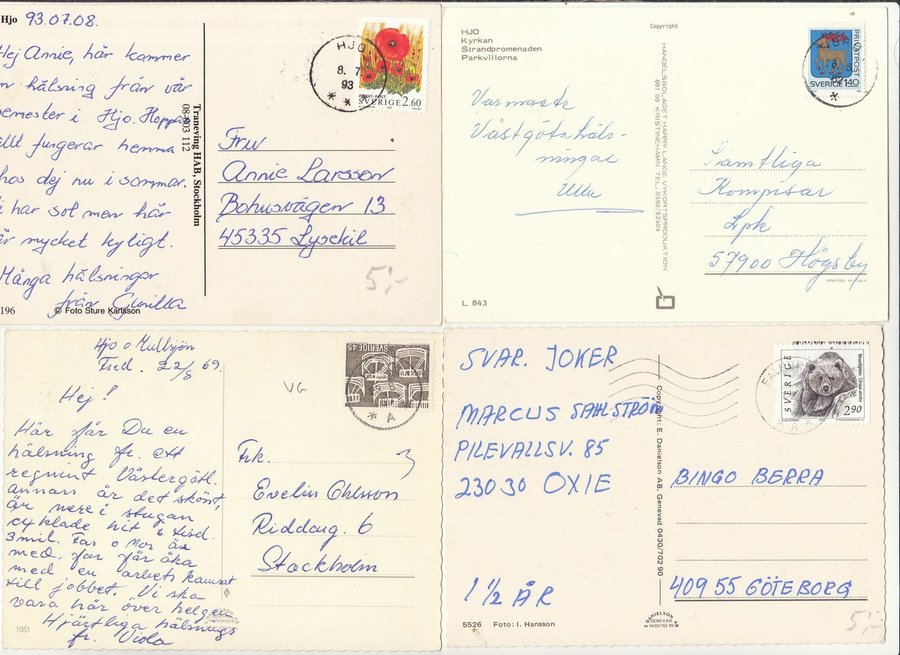 Hjo 93.07.08.
Hej Annie, här kommer
n hälsning från vår
semester i Hjo. Hoppas
allt fungerar hemma
hos dej nu i sommar.
i har sol men här
är mycket kyligt.
Många hälsningar
från Gunilla
196
© Foto Sture Karlsson
Traneving HAB, Stockholm
08-803 112
HJO
8. 7.
93
SVERIGE 2.60
Fru
Annie Larsson
Bohusvägen 13
45335 Lysekil
5:-
HJO
Kyrkan
Strandpromenaden
Parkvillorna
Copyright
HANDELSBOLAGET HARRY LANGE VYKORTSPRODUKTION
681 00 KRISTINEHAMN TEL. 0550/82404
PRIVATPOST
SVERIGE 140
Varmaste
Västgötahäls-
ningar
Ulla
Samtliga
Kompisar
Lpk
57900 Högsby
L. 843
PRINTED IN ITALY
Hjo o Mullsjön
Fred. 22/8 69.
Hej!
Här får Du en
hälsning fr. ett
regnint Västergötl.
annars är det skönt,
är nere i stugan
cyklade hit i tisd.
3 mil. Far o Mor är
med, far får åka
med en arbetskamrat
till jobbet. Vi ska
vara här över helgen
Hjärtliga hälsnings
fr. Viola
1051
VG
SVERIGE 45
A
Frk.
Evelin Ohlsson
Riddarg. 6
Stockholm
SVAR. JOKER
MARCUS SAHLSTRÖM
PILEVALLSV. 85
230 30 OXIE
1 1/2 ÅR
5526 Foto: I. Hansson
Copyright: E. Danielson AB, Genevad 0430/702 90
DANIELSON AB
GENEVAD
0430/702 90
SVERIGE
Brunbjörn Ursus arctos
2.90
BINGO BERRA
409 55 GÖTEBORG
5:-